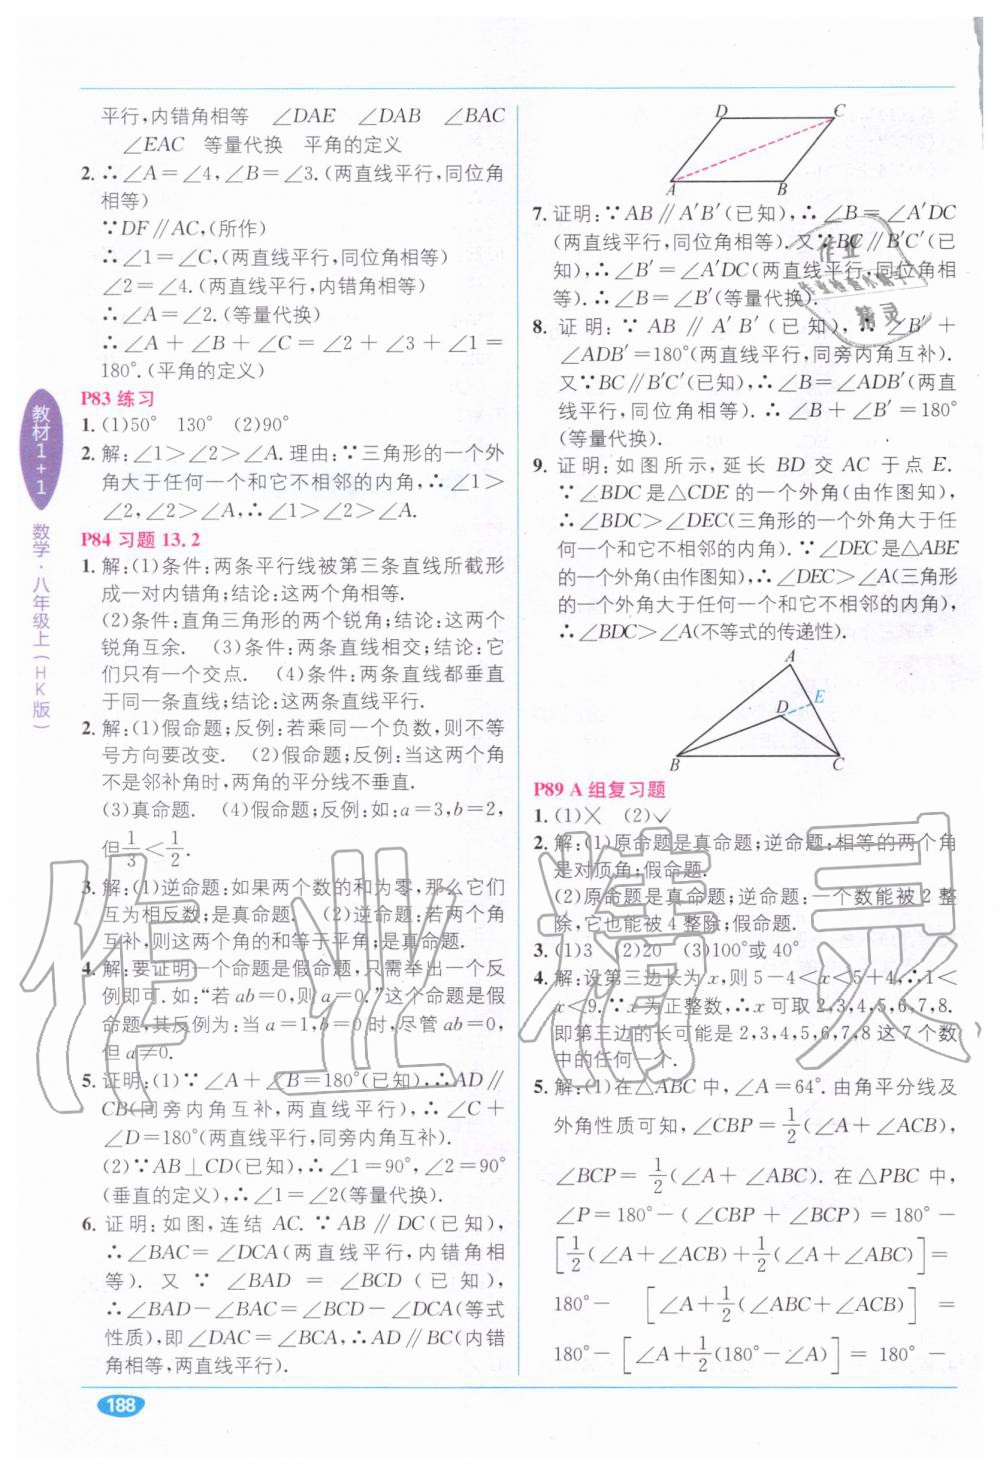 平行,内错角相等 ∠DAE ∠DAB ∠BAC
∠EAC 等量代换 平角的定义
2. ∴∠A=∠4,∠B=∠3.(两直线平行,同位角
相等)
∵DF∥AC,(所作)
∴∠1=∠C,(两直线平行,同位角相等)
∠2=∠4.(两直线平行,内错角相等)
∴∠A=∠2.(等量代换)
∴∠A+∠B+∠C=∠2+∠3+∠1=
180°.(平角的定义)
P83 练习
1. (1)50° 130° (2)90°
2. 解:∠1>∠2>∠A.理由:∵三角形的一个外
角大于任何一个和它不相邻的内角,∴∠1>
∠2,∠2>∠A,∴∠1>∠2>∠A.
P84 习题 13.2
1. 解:(1)条件:两条平行线被第三条直线所截形
成一对内错角;结论:这两个角相等.
(2)条件:直角三角形的两个锐角;结论:这两个
锐角互余. (3)条件:两条直线相交;结论:它
们只有一个交点. (4)条件:两条直线都垂直
于同一条直线;结论:这两条直线平行.
2. 解:(1)假命题;反例:若乘同一个负数,则不等
号方向要改变. (2)假命题;反例:当这两个角
不是邻补角时,两角的平分线不垂直.
(3)真命题. (4)假命题;反例:如:a=3,b=2,
但1/3<1/2.
3. 解:(1)逆命题:如果两个数的和为零,那么它们
互为相反数;是真命题. (2)逆命题:若两个角
互补,则这两个角的和等于平角;是真命题.
4. 解:要证明一个命题是假命题,只需举出一个反
例即可.如:“若ab=0,则a=0.”这个命题是假
命题,其反例为:当a=1,b=0时,尽管ab=0,
但a≠0.
5. 证明:(1)∵∠A+∠B=180°(已知),∴AD∥
CB(同旁内角互补,两直线平行),∴∠C+
∠D=180°(两直线平行,同旁内角互补).
(2)∵AB⊥CD(已知),∴∠1=90°,∠2=90°
(垂直的定义),∴∠1=∠2(等量代换).
6. 证明:如图,连结 AC.∵AB∥DC(已知),
∴∠BAC=∠DCA(两直线平行,内错角相
等). 又∵∠BAD=∠BCD(已知),
∴∠BAD-∠BAC=∠BCD-∠DCA(等式
性质),即∠DAC=∠BCA,∴AD∥BC(内错
角相等,两直线平行).
D C
A B
7. 证明:∵AB∥A′B′(已知),∴∠B=∠A′DC
(两直线平行,同位角相等).又∵BC∥B′C′(已
知),∴∠B′=∠A′DC(两直线平行,同位角相
等).∴∠B=∠B′(等量代换).
8. 证明:∵AB∥A′B′(已知),∴∠B′+
∠ADB′=180°(两直线平行,同旁内角互补).
又∵BC∥B′C′(已知),∴∠B=∠ADB′(两直
线平行,同位角相等).∴∠B+∠B′=180°
(等量代换).
9. 证明:如图所示,延长 BD 交 AC 于点 E.
∵∠BDC是△CDE的一个外角(由作图知),
∴∠BDC>∠DEC(三角形的一个外角大于任
何一个和它不相邻的内角).∵∠DEC是△ABE
的一个外角(由作图知),∴∠DEC>∠A(三角形
的一个外角大于任何一个和它不相邻的内角),
∴∠BDC>∠A(不等式的传递性).
A
D E
B C
P89 A 组复习题
1. (1)× (2)✓
2. 解:(1)原命题是真命题;逆命题:相等的两个角
是对顶角;假命题.
(2)原命题是真命题;逆命题:一个数能被 2 整
除,它也能被 4 整除;假命题.
3. (1)3 (2)20 (3)100°或 40°
4. 解:设第三边长为x,则5-4<x<5+4,∴1<
x<9.∵x为正整数,∴x可取2,3,4,5,6,7,8.
即第三边的长可能是2,3,4,5,6,7,8这7个数
中的任何一个.
5. 解:(1)在△ABC中,∠A=64°.由角平分线及
外角性质可知,∠CBP=1/2(∠A+∠ACB),
∠BCP=1/2(∠A+∠ABC).在△PBC中,
∠P=180°-(∠CBP+∠BCP)=180°-
[1/2(∠A+∠ACB)+1/2(∠A+∠ABC)]=
180°-[∠A+1/2(∠ABC+∠ACB)]=
180°-[∠A+1/2(180°-∠A)]=180°-
教材1+1
数学·八年级上(HK版)
188
作业精灵
作业
作业检查小帮手
精灵